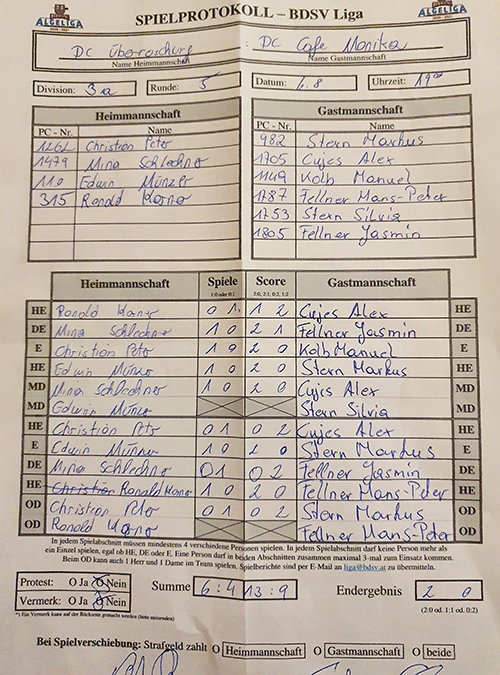 ALGELIGA SPIELPROTOKOLL – BDSV Liga ALGELIGA
DC Überraschung : DC Cafe Monika
Name Heimmannschaft Name Gastmannschaft
Division: 3a Runde: 5 Datum: 6.8 Uhrzeit: 19⁰⁰
Heimmannschaft Gastmannschaft
PC - Nr. Name PC - Nr. Name
1262 Christian Peter 982 Stern Markus
1479 Mina Schlechner 1705 Cujes Alex
110 Edwin Münzer 1149 Kolb Manuel
315 Ronald Horno 1787 Fellner Hans-Peter
1753 Stern Silvia
1805 Fellner Jasmin
Heimmannschaft Spiele Score Gastmannschaft
1:0 oder 0:1 2:0, 2:1, 0:2, 1:2
HE Ronald 0 1 1 2 Cujes Alex HE
DE Mina Schlechner 1 0 2 1 Fellner Jasmin DE
E Christian Peter 1 0 2 0 Kolb Manuel E
HE Edwin 1 0 2 0 Stern Markus HE
MD Mina Schlechner 1 0 2 0 Cujes Alex MD
MD Edwin Stern Silvia MD
HE Christian Peter 0 1 0 2 Cujes Alex HE
E Edwin 1 0 2 0 Stern Markus E
DE Mina Schlechner 0 1 0 2 Fellner Jasmin DE
HE Christian Ronald Horno 1 0 2 0 Fellner Hans-Peter HE
OD Christian Peter 0 1 0 2 Stern Markus OD
OD Ronald Horno Fellner Hans-Peter OD
In jedem Spielabschnitt müssen mindestens 4 verschiedene Personen spielen. In jedem Spielabschnitt darf keine Person mehr als
ein Einzel spielen, egal ob HE, DE oder E. Eine Person darf in beiden Abschnitten zusammen maximal 3-mal zum Einsatz kommen.
Beim OD kann auch 1 Herr und 1 Dame im Team spielen. Spielberichte sind per E-Mail an liga@bdsv.at zu übermitteln.
Protest: O Ja O Nein Summe 6:4 13:9 Endergebnis 2 0
Vermerk: O Ja O Nein (2:0 od. 1:1 od. 0:2)
*) Ein Vermerk kann auf der Rückseite gemacht werden (bitte ankreuzen)
Bei Spielverschiebung: Strafgeld zahlt O Heimmannschaft O Gastmannschaft O beide